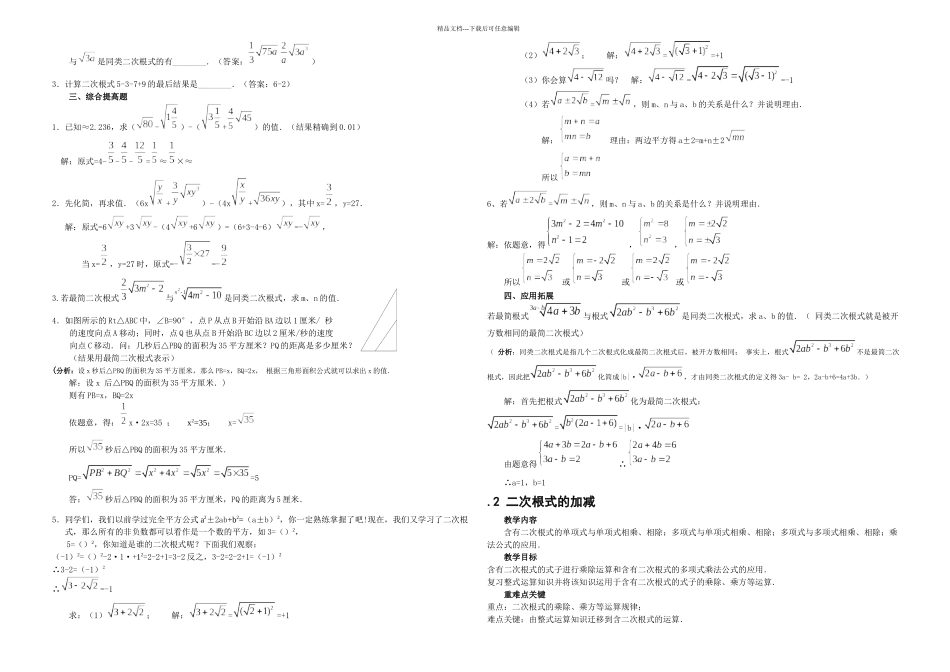 精品文档---下载后可任意编辑
与√3a是同类二次根式的有________.(答案: 1/3√75a 2/a√3a³ )
3.计算二次根式5-3-7+9的最后结果是________.(答案:6-2)
三、综合提高题
1.已知≈2.236,求(√80-√1 4/5)-(√3 1/5+4/5√45)的值.(结果精确到0.01)
解:原式=4-3/5-4/5-12/5=1/5≈1/5×≈
2.先化简,再求值.(6x√y/x+3/y√xy³)-(4x√x/y+√36xy),其中x=3/2,y=27.
解:原式=6√xy+3√xy-(4√xy+6√xy)=(6+3-4-6)√xy=-√xy,
当x=3/2,y=27时,原式=-√3×27/2=-9/2
3.若最简二次根式2/3√3m²-2与n²-1√4m²-10是同类二次根式,求m、n的值.
4.如图所示的Rt△ABC中,∠B=90°,点P从点B开始沿BA边以1厘米/ 秒
的速度向点A移动;同时,点Q也从点B开始沿BC边以2厘米/秒的速度
向点C移动.问:几秒后△PBQ的面积为35平方厘米?PQ的距离是多少厘米?
(结果用最简二次根式表示)
(分析:设x秒后△PBQ的面积为35平方厘米,那么PB=x,BQ=2x, 根据三角形面积公式就可以求出x的值.
解:设x 后△PBQ的面积为35平方厘米.)
则有PB=x,BQ=2x
依题意,得:1/2x·2x=35 ; x²=35; x=√35
所以√35秒后△PBQ的面积为35平方厘米.
PQ=√PB²+BQ²=√x²+4x²=√5x²=√5×35=5
答:√35秒后△PBQ的面积为35平方厘米,PQ的距离为5厘米.
5.同学们,我们以前学过完全平方公式a²±2ab+b²=(a±b)²,你一定熟练掌握了吧!现在,我们又学习了二次根
式,那么所有的非负数都可以看作是一个数的平方,如3=()²,
5=()²,你知道是谁的二次根式呢?下面我们观察:
(-1)²=()²-2·1·+1²=2-2+1=3-2反之,3-2=2-2+1=(-1)²
∴3-2=(-1)²
∴√3-2√2=-1
求:(1)√3+2√2; 解:√3+2√2=√(√2+1)²=+1
(2)√4+2√3; 解:√4+2√3=√(√3+1)²=+1
(3)你会算√4-√12吗? 解:√4-√12=√4-2√3=√(√3-1)²=-1
(4)若√a±2√b=√m±√n,则m、n与a、b的关系是什么?并说明理由.
解:{m+n=a mn=b 理由:两边平方得a±2=m+n±2√mn
所以{a=m+n b=mn
6、若√a±2√b=√m±√n,则m、n与a、b的关系是什么?并说明理由.
解:依题意,得{3m²-2=4m²-10 n²-1=2 ,{m²=8 n²=3 ,{m=±2√2 n=±√3
所以{m=2√2 n=√3 或{m=-2√2 n=√3 或{m=2√2 n=-√3 或{m=-2√2 n=-√3
四、应用拓展
若最简根式3a-b√4a+3b与根式√2ab²-b³+6b²是同类二次根式,求a、b的值.( 同类二次根式就是被开
方数相同的最简二次根式)
( 分析:同类二次根式是指几个二次根式化成最简二次根式后,被开方数相同; 事实上,根式√2ab²-b³+6b²不是最简二次
根式,因此把√2ab²-b³+6b²化简成|b|·√2a-b+6,才由同类二次根式的定义得3a-b=2,2a-b+6=4a+3b.)
解:首先把根式√2ab²-b³+6b²化为最简二次根式:
√2ab²-b³+6b²=√b²(2a-1+6)=|b|·√2a-b+6
由题意得{4a+3b=2a-b+6 3a-b=2 ∴{2a+4b=6 3a-b=2
∴a=1,b=1
.2 二次根式的加减
教学内容
含有二次根式的单项式与单项式相乘、相除;多项式与单项式相乘、相除;多项式与多项式相乘、相除;乘
法公式的应用.
教学目标
含有二次根式的式子进行乘除运算和含有二次根式的多项式乘法公式的应用.
复习整式运算知识并将该知识运用于含有二次根式的式子的乘除、乘方等运算.
重难点关键
重点:二次根式的乘除、乘方等运算规律;
难点关键:由整式运算知识迁移到含二次根式的运算.